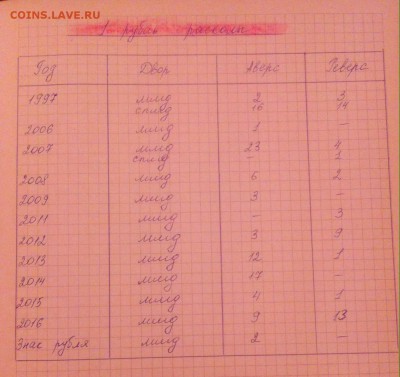 COINS.LAVE.RU
1 рубль расколы
Год Двор Аверс Реверс
1997 ммд 2 3
спмд 16 14
2006 ммд 1 –
2007 ммд 23 4
спмд – 1
2008 ммд 6 2
2009 ммд 3 –
2011 ммд – 3
2012 ммд 3 9
2013 ммд 12 1
2014 ммд 17 –
2015 ммд 4 1
2016 ммд 9 13
Знак рубля ммд 2 –